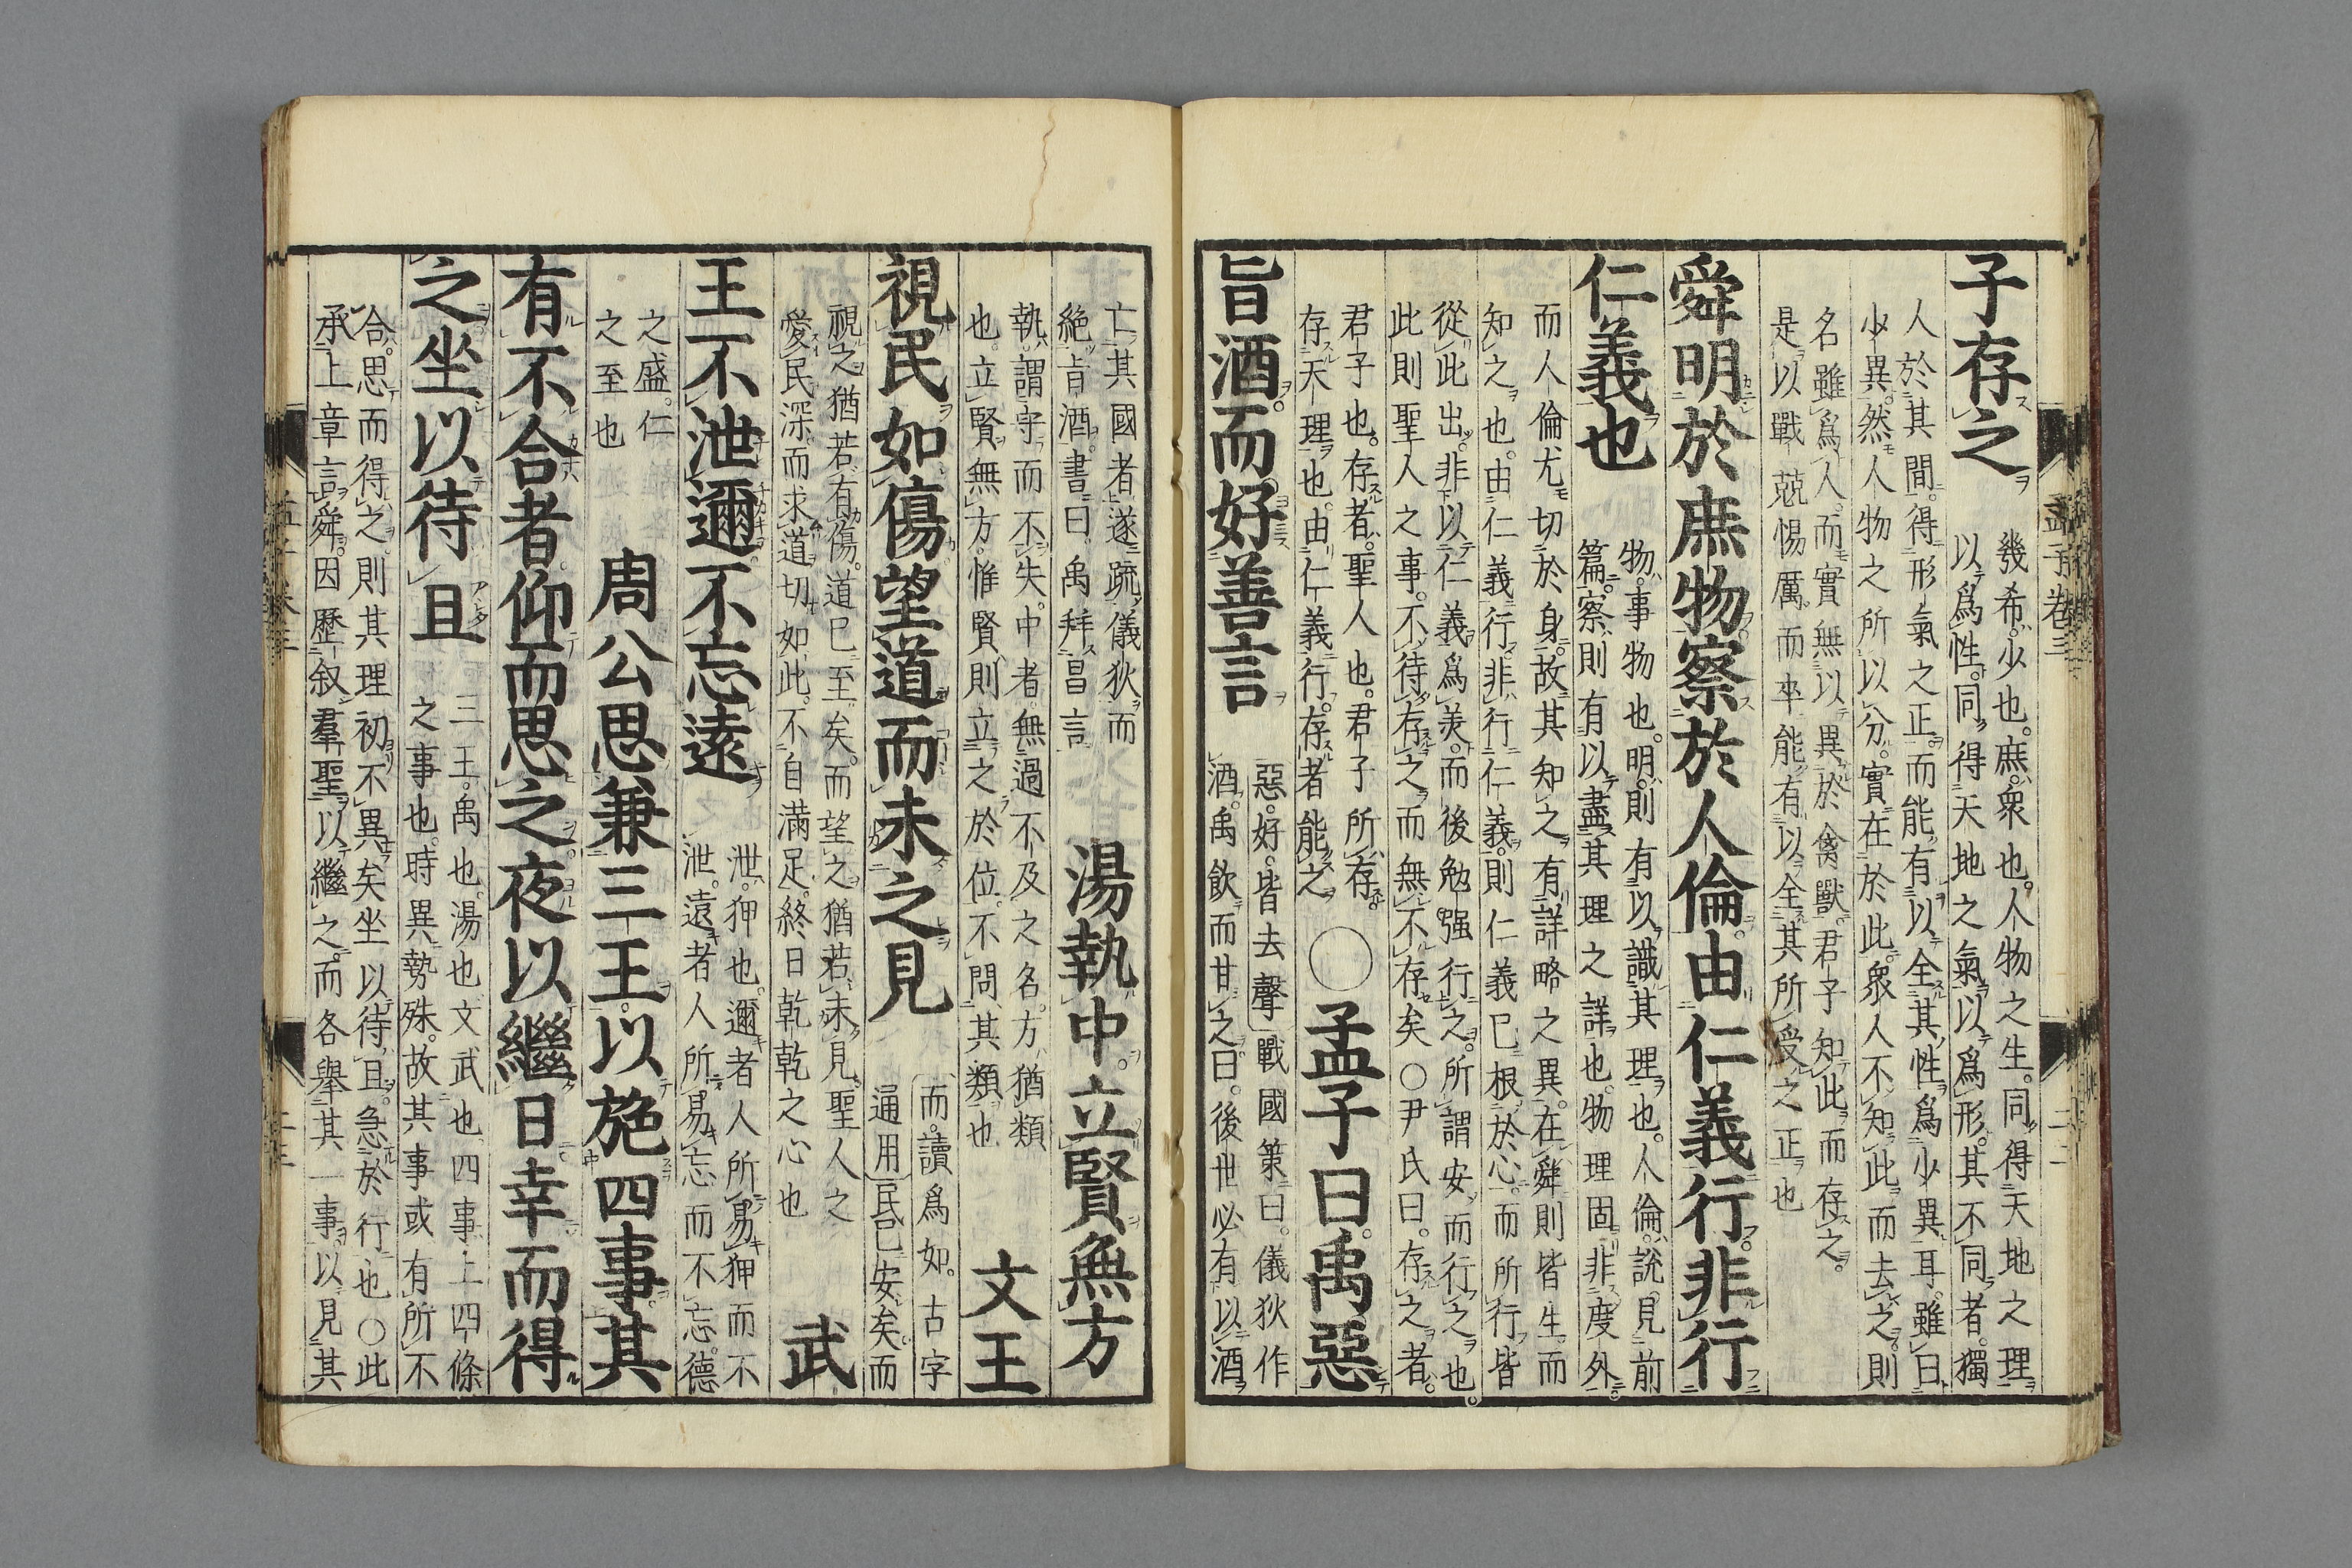 孟子卷三
二二
子存之
幾希。少也。庶。衆也。人物之生。同得天地之理
以爲性。同得天地之氣以爲形。其不同者。獨
人於其間。得形氣之正。而能有以全其性爲少異耳。雖曰
少異。然人物之所以分。實在於此。衆人不知此而去之。則
名雖爲人。而實無以異於禽獸。君子知此而存之。
是以戰兢惕厲。而卒能有以全其所受之正也
舜明於庶物。察於人倫。由仁義行。非行
仁義也
物。事物也。明。則有以識其理也。人倫。說見前
篇。察。則有以盡其理之詳也。物理固非度外。
而人倫尤切於身。故其知之有詳略之異。在舜則皆生而
知之也。由仁義行。非行仁義。則仁義已根於心。而所行皆
從此出。非以仁義爲美。而後勉强行之。所謂安而行之也。
此則聖人之事。不待存之而無不存矣○尹氏曰。存之者。
君子也。存者。聖人也。君子所存。
存天理也。由仁義行。存者能之
○孟子曰。禹惡
旨酒。而好善言
惡。好。皆去聲 戰國策曰。儀狄作
酒。禹飲而甘之曰。後世必有以酒
亡其國者。遂疏儀狄。而
絶旨酒。書曰。禹拜昌言
湯執中。立賢無方
執。謂守而不失。中者。無過不及之名。方。猶類
也。立賢無方。惟賢則立之於位。不問其類也
文王
視民如傷。望道而未之見
而。讀爲如。古字
通用 民已安矣。而
視之猶若有傷。道已至矣。而望之猶若未見。聖人之
愛民深。而求道切如此。不自滿足。終日乾乾之心也
武
王不泄邇。不忘遠
泄。狎也。邇者人所易狎而不
泄。遠者人所易忘而不忘。德
之盛。仁
之至也
周公思兼三王。以施四事。其
有不合者。仰而思之。夜以繼日。幸而得
之。坐以待旦
三王。禹也。湯也。文武也。四事。上四條
之事也。時異勢殊。故其事或有所不
合。思而得之。則其理初不異矣。坐以待旦。急於行也○此
承上章言舜。因歷叙羣聖以繼之。而各舉其一事。以見其